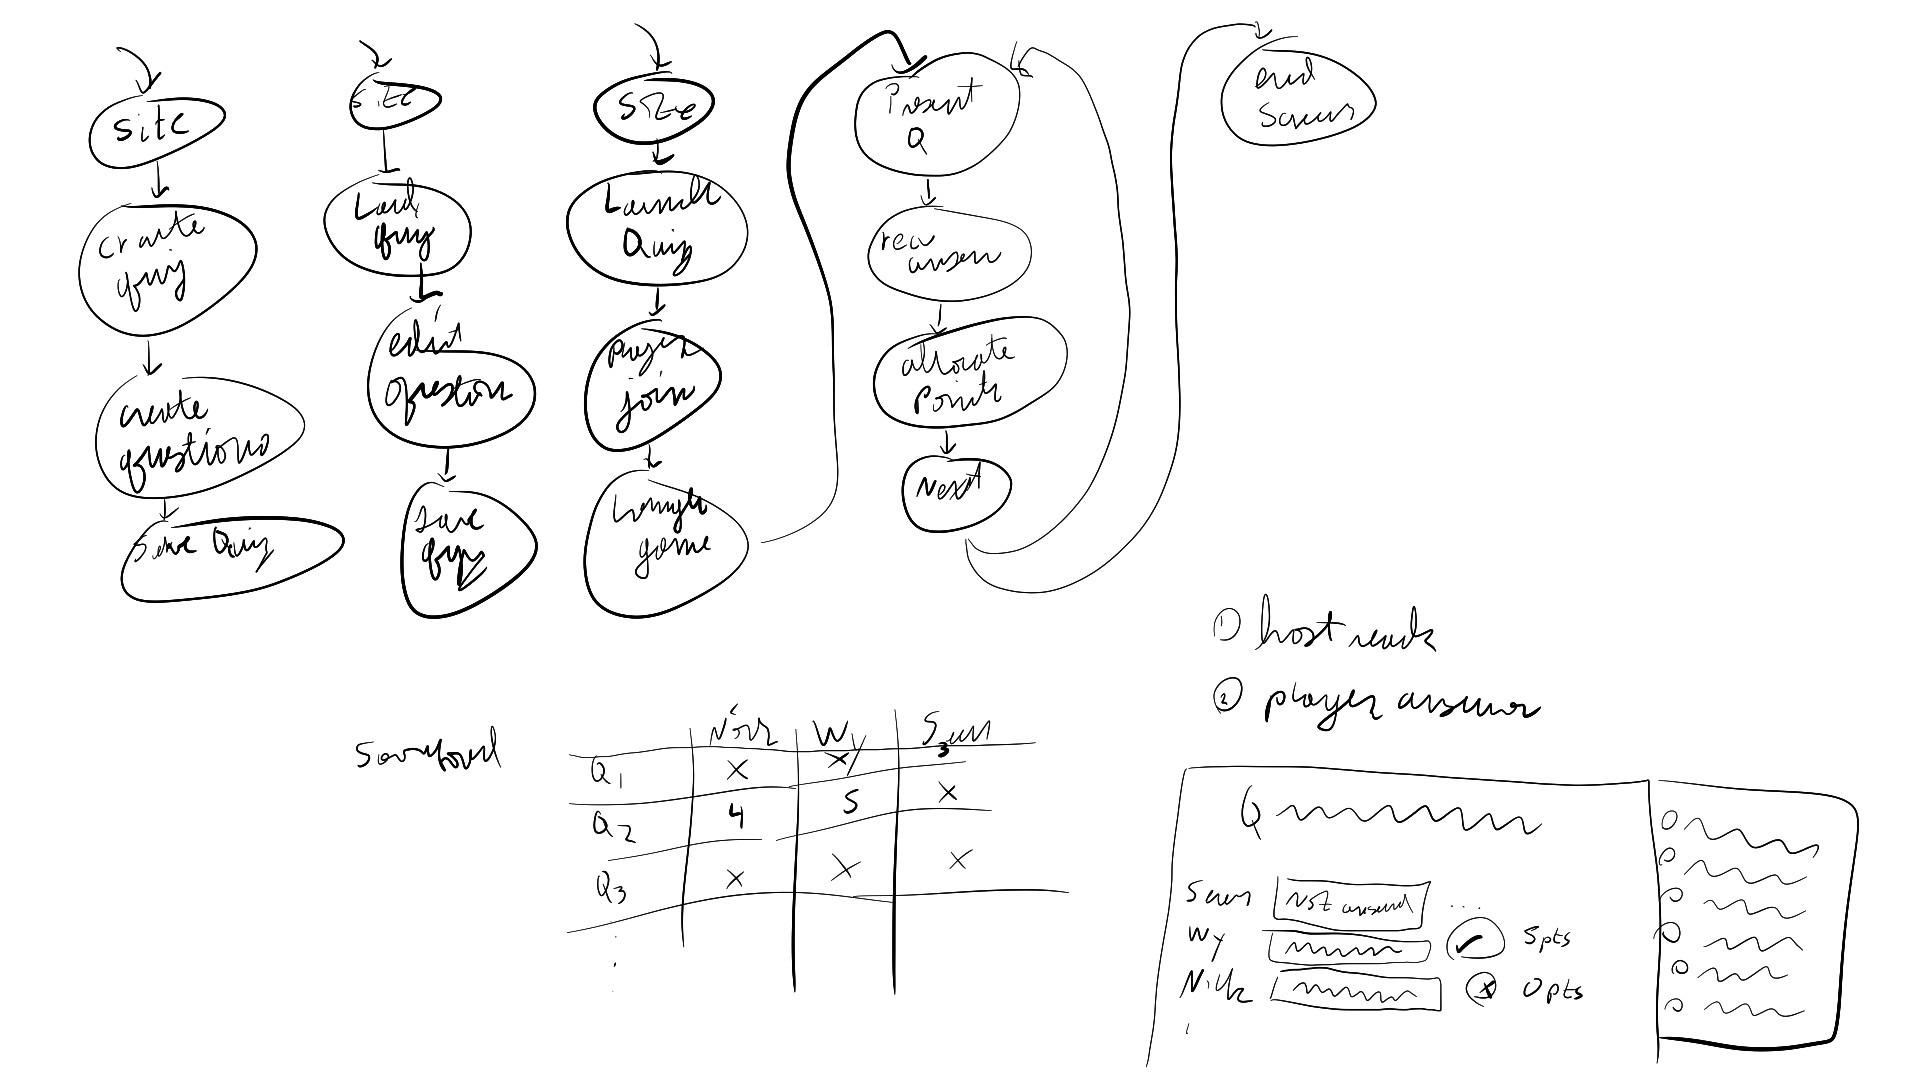 site
create
quiz
create
questions
Save Quiz
site
Load
quiz
edit
question
save
quiz
Site
Launch
Quiz
player
join
game
Present
Q
recv
answer
allocate
points
Next
end
Screen
① host reads
② player answer
Nick Wy Sean
Q1 X X 3
Q2 4 5 X
Q3 X X X
Q
Sean Not answered ...
Wy ✓ 5pts
Nick X 0pts